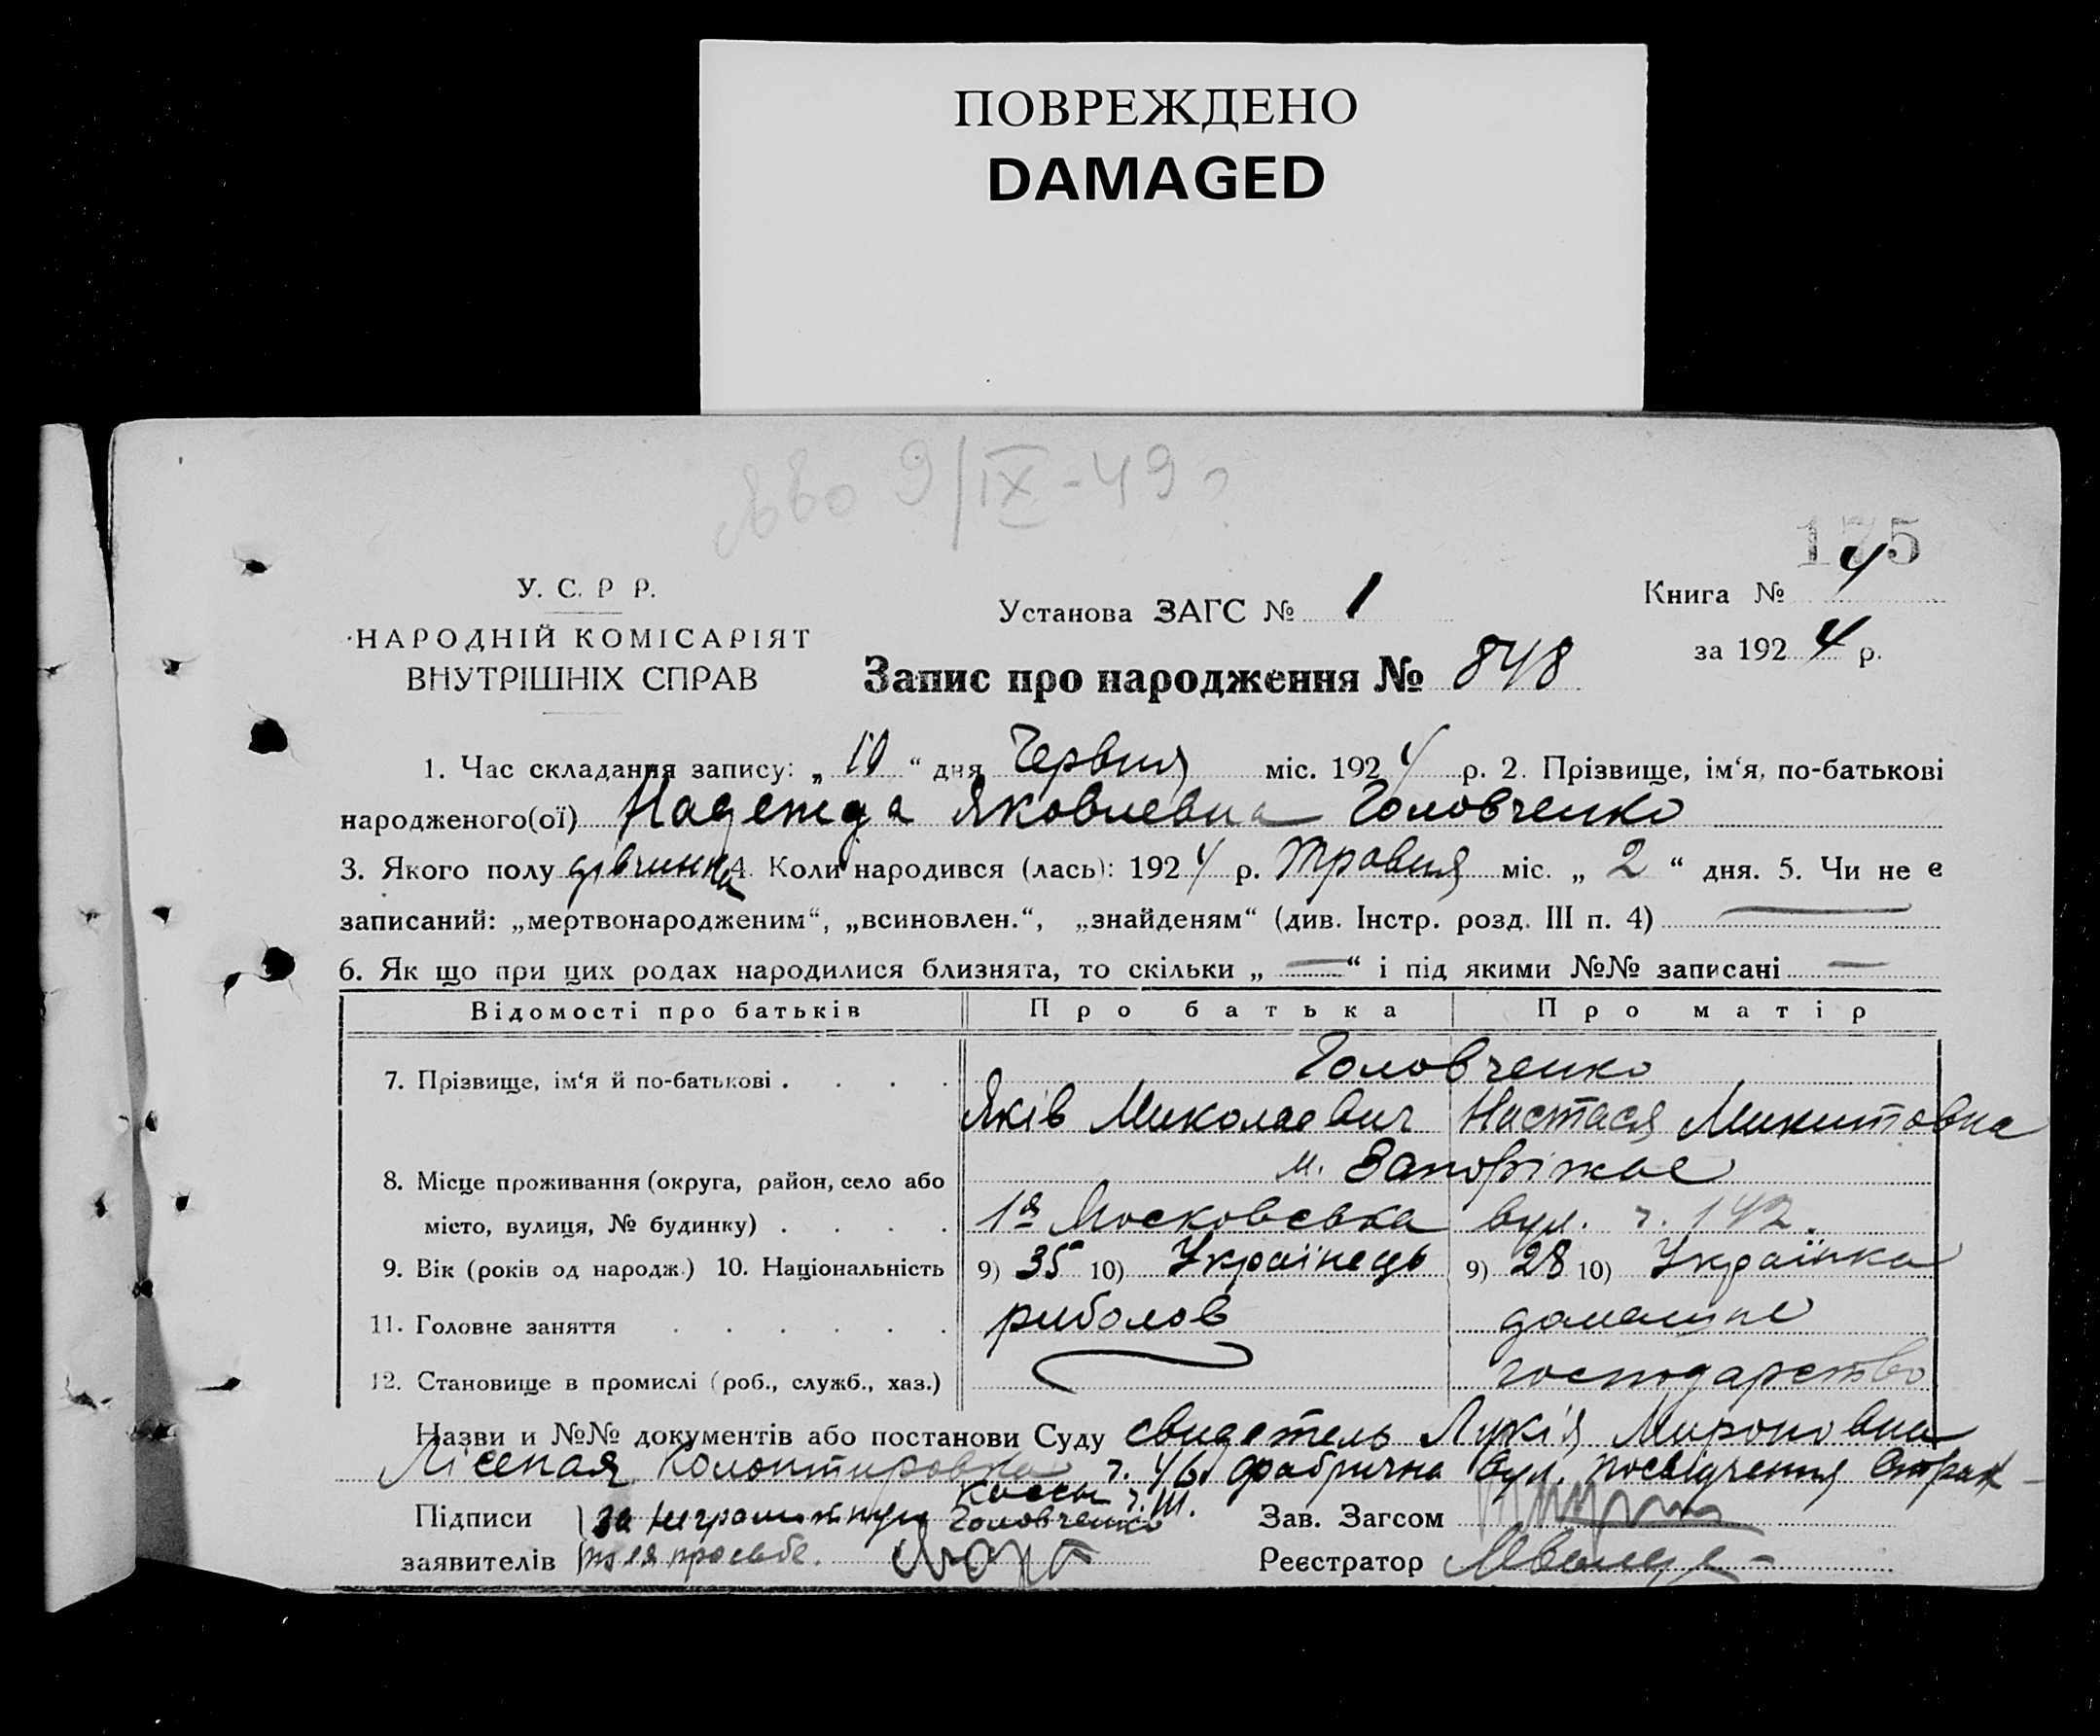 ПОВРЕЖДЕНО
DAMAGED
9/IX-49
175
У. С. Р Р.
НАРОДНІЙ КОМІСАРІЯТ
ВНУТРІШНІХ СПРАВ
Установа ЗАГС № 1
Книга № 4
за 1924 р.
Запис про народження № 848
1. Час складання запису: „ 10 “ дня Червня міс. 1924 р. 2. Прізвище, ім‘я, по-батькові
народженого(ої) Надежда Яковлевна Головченко
3. Якого полу дівчинка 4. Коли народився (лась): 1924 р. Травня міс. „ 2 “ дня. 5. Чи не є
записаний: „мертвонародженим“, „всиновлен.“, „знайденям“ (див. Інстр. розд. III п. 4) —
6. Як що при цих родах народилися близнята, то скільки „ — “ і під якими №№ записані —
Відомості про батьків Про батька Про матір
7. Прізвище, ім‘я й по-батькові . . . . Головченко
Яків Миколаевич Настася Микитовна
8. Місце проживання (округа, район, село або м. Запоріжье
місто, вулиця, № будинку) . . . . 1я Московська вул. ч. 142.
9. Вік (років од народж.) 10. Національність 9) 35 10) Українець 9) 28 10) Українка
11. Головне заняття . . . . . . риболов домашне
12. Становище в промислі (роб., служб., хаз.) господарство
Назви и №№ документів або постанови Суду свидетель Лукія Мироновна
ч. 46. Фабрична вул. посвідчення Страх-
кассы
Підписи за неграмотную Головченко
заявителів по ея просьбе.
Зав. Загсом
Реєстратор